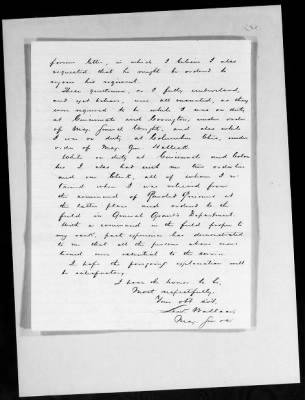 former letter, in which I believe I also
requested that he might be ordered to
rejoin his regiment.
These gentlemen, as I fully understood,
and yet believe, were all mustered, as they
were required to be while I was on duty
at Cincinnati and Covington, under orders
of Maj. General Wright, and also while
I was on duty at Columbus Ohio, under
orders of Maj. Gen Halleck
While on duty at Cincinnati and Colum
bus I also had with me two orderlies
and one Clerk, all of whom I re
tained when I was relieved from
the command of Paroled Prisoners at
the latter place and ordered to the
field in General Grant's Department.
With a command in the field proper to
my rank, past experience has demonstrated
to me that all the persons above men
tioned were essential to the service.
I hope the foregoing explanation will
be satisfactory.
I have the honor to be,
Most respectfully,
Your obt svt.
Lew Wallace
Maj. Gen